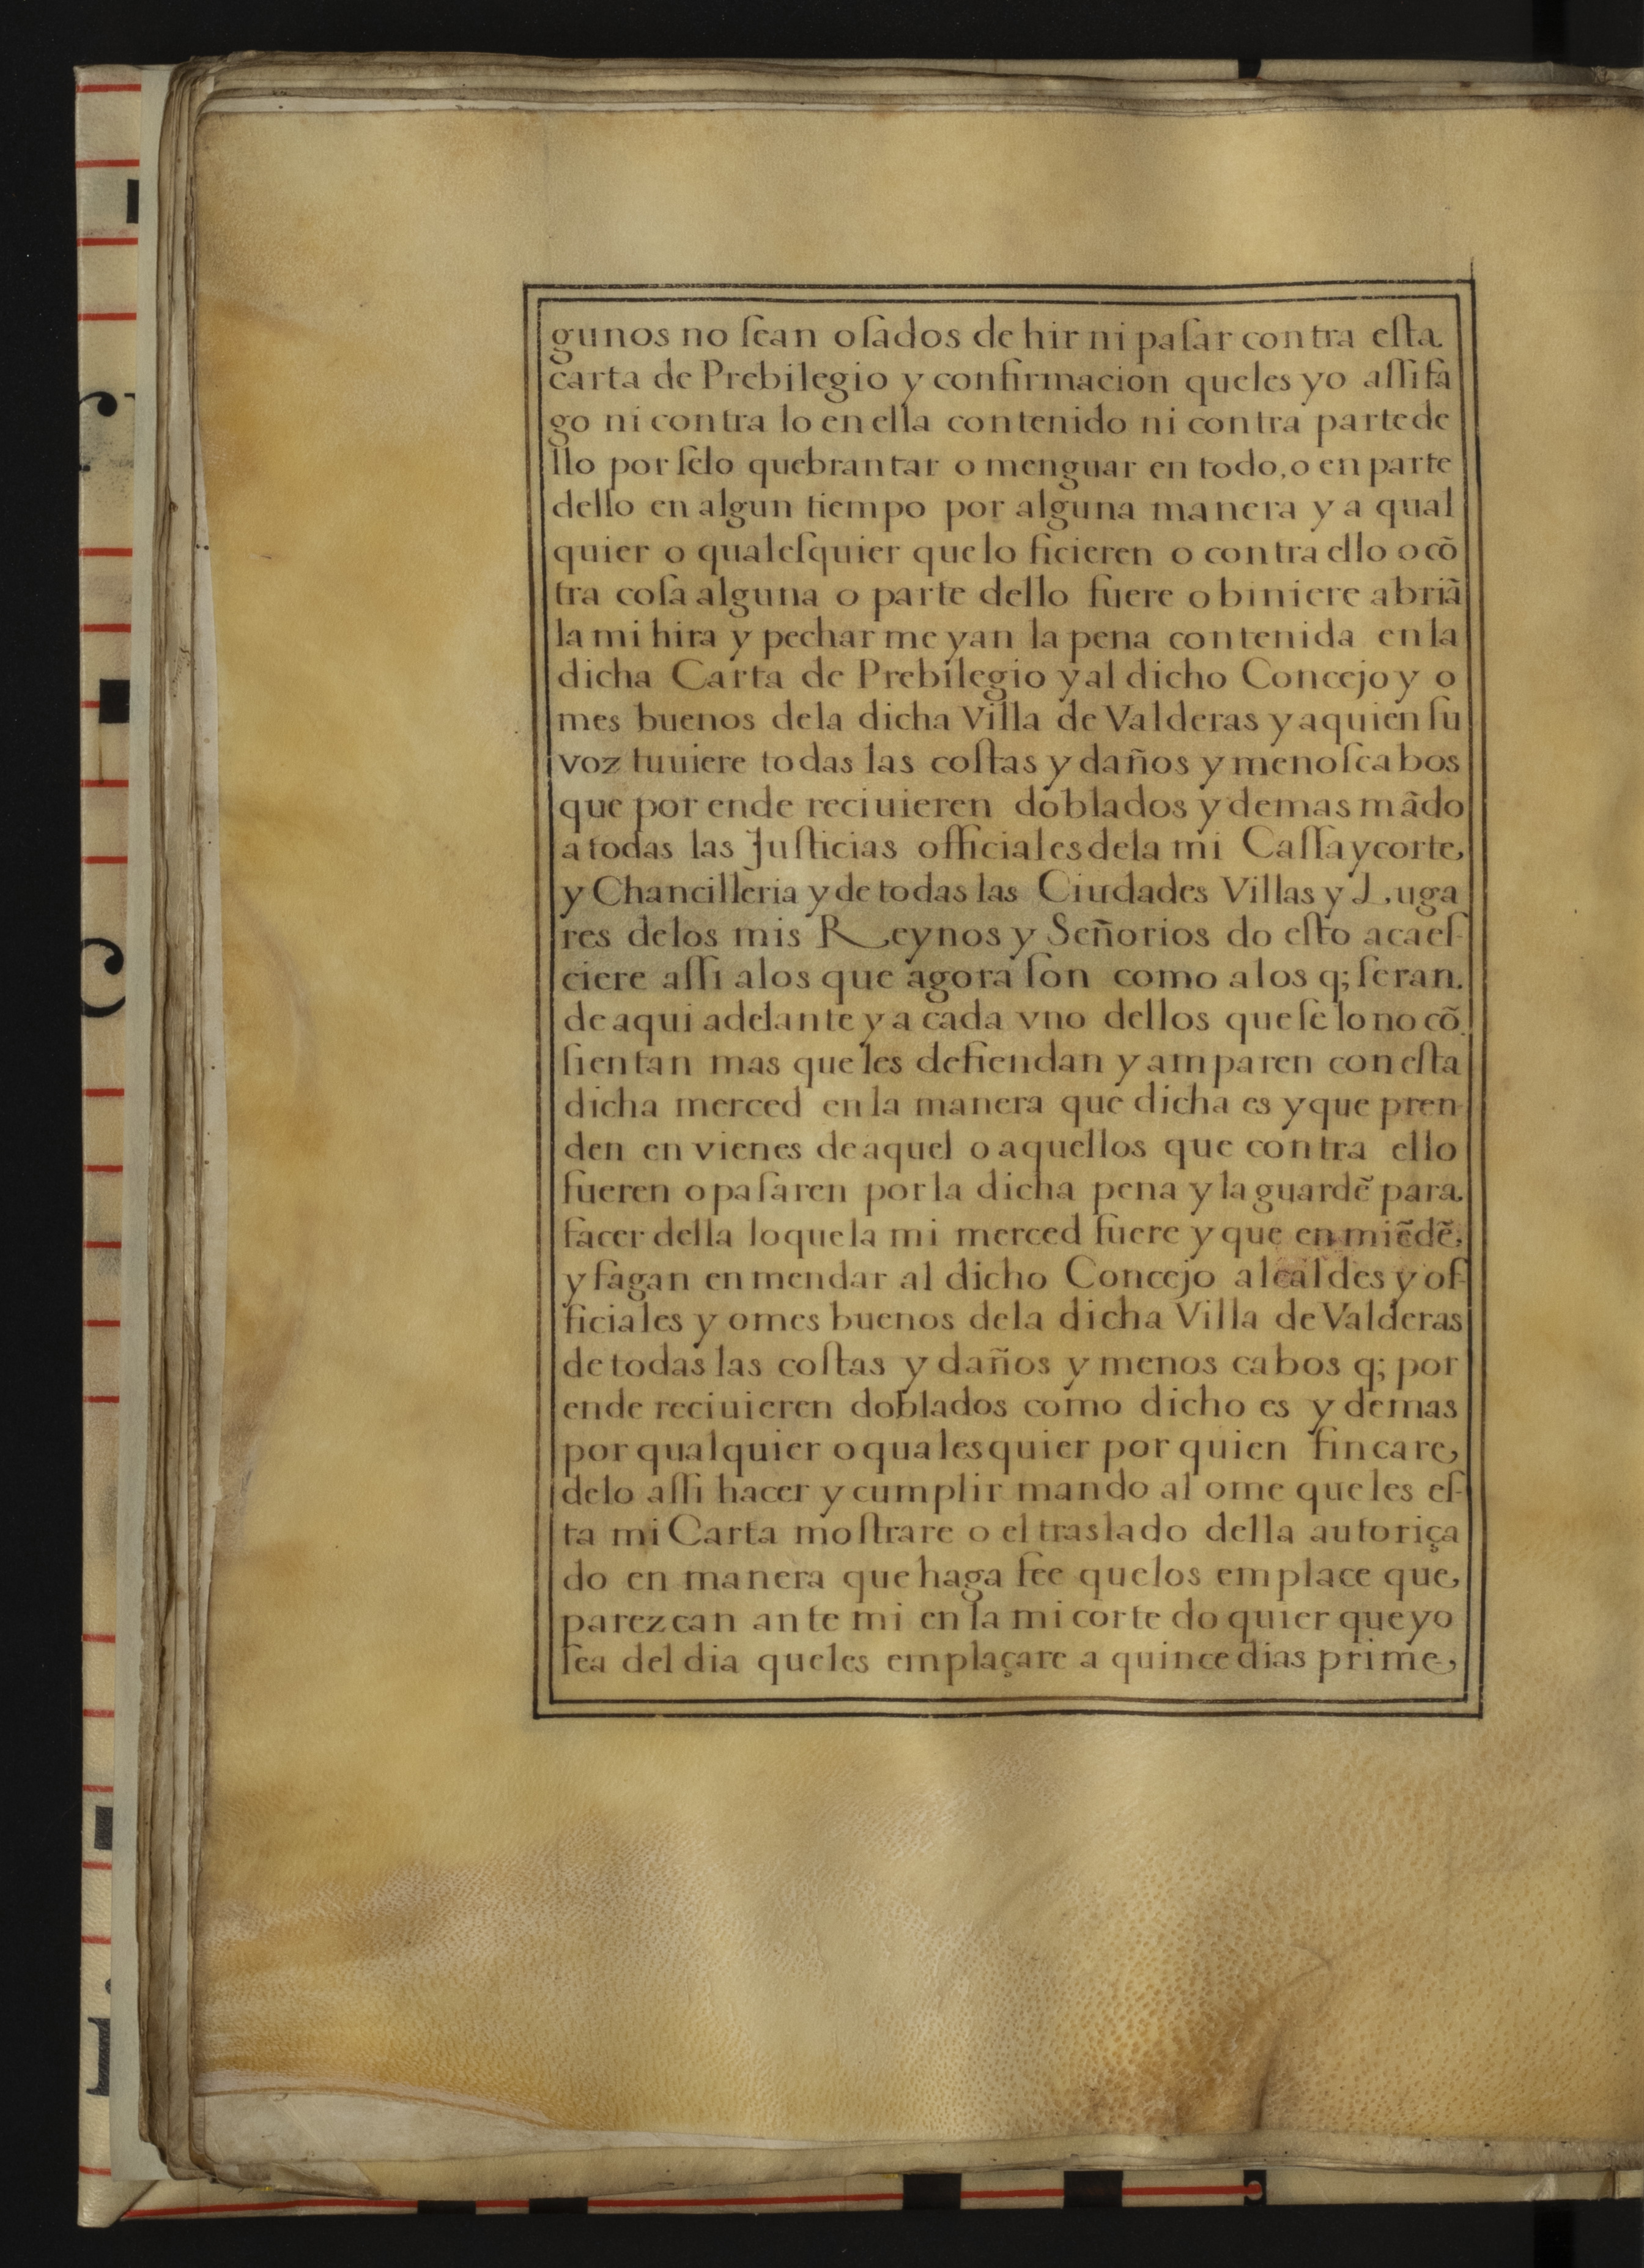 gunos no ſean oſados de hir ni paſar contra eſta.
carta de Prebilegio y confirmacion queles yo aſſifa
go ni contra lo en ella contenido ni contra partede
llo por ſelo quebrantar o menguar en todo, o en parte
dello en algun tiempo por alguna manera y a qual
quier o qualeſquier que lo ficieren o contra ello o cõ
tra coſa alguna o parte dello fuere o biniere abriã
la mi hira y pechar me yan la pena contenida en la
dicha Carta de Prebilegio y al dicho Concejo y o
mes buenos dela dicha Villa de Valderas y aquien ſu
voz tuuiere todas las coſtas y daños y menoſcabos
que por ende reciuieren doblados y demas mãdo
a todas las Juſticias officiales dela mi Caſſa y corte,
y Chancilleria y de todas las Ciudades Villas y Luga
res delos mis Reynos y Señorios do eſto acaeſ-
ciere aſſi alos que agora ſon como alos q; ſeran.
de aqui adelante y a cada vno dellos que ſe lo no cõ
ſientan mas que les defiendan y amparen con eſta
dicha merced en la manera que dicha es y que pren-
den en vienes de aquel o aquellos que contra ello
fueren o paſaren por la dicha pena y la guardẽ para.
facer della loquela mi merced fuere y que en miẽdẽ,
y fagan enmendar al dicho Concejo alcaldes y of-
ficiales y omes buenos dela dicha Villa de Valderas
de todas las coſtas y daños y menos cabos q; por
ende reciuieren doblados como dicho es y demas
por qualquier o qualesquier por quien fincare,
delo aſſi hacer y cumplir mando al ome que les eſ-
ta mi Carta moſtrare o el traslado della autoriça
do en manera que haga fee quelos emplace que,
parezcan ante mi en la mi corte do quier que yo
ſea del dia queles emplaçare a quince dias prime,